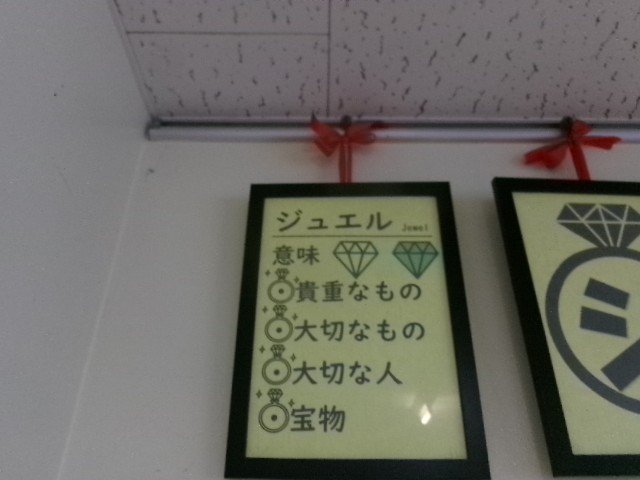 ジュエル Jewel
意味
貴重なもの
大切なもの
大切な人
宝物
ジ